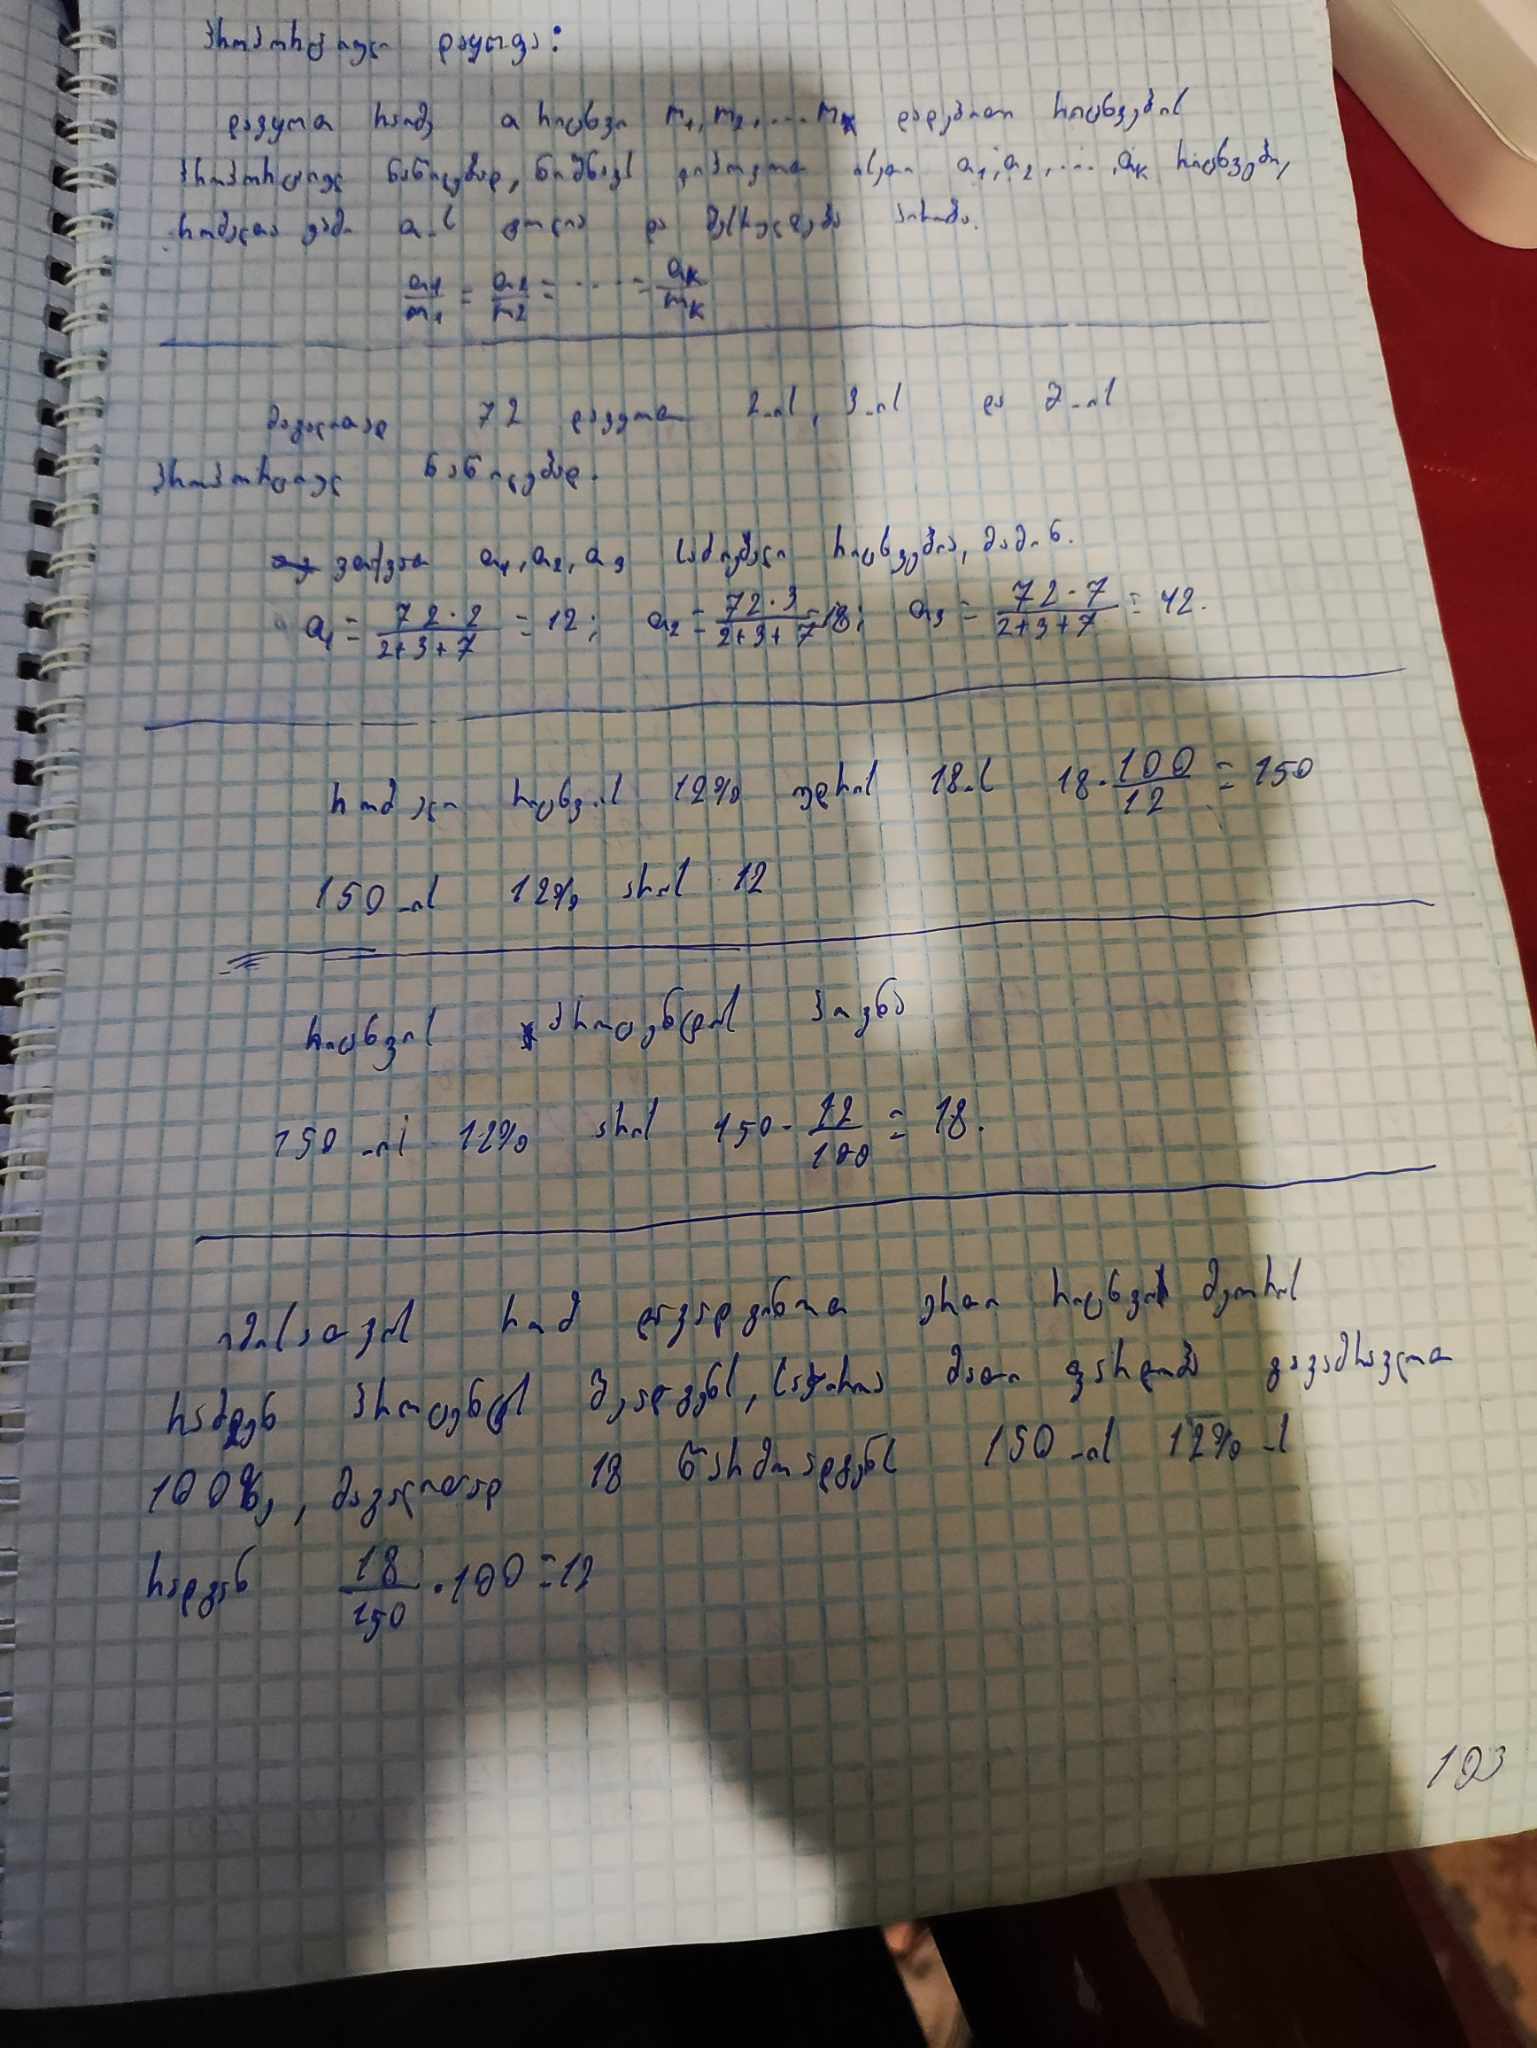 პროპორციული დაყოფა:
დავყოთ რაიმე a რიცხვი m1, m2, .... mk დადებითი რიცხვების
პროპორციულ ნაწილებად, ნიშნავს ვიპოვოთ ისეთი a1, a2, ...., ak რიცხვები,
რომელთა ჯამი a-ს ტოლია და შესრულდება პირობა.
a1/m1 = a2/m2 = .... = ak/mk
მაგალითად 72 დავყოთ 2-ის, 3-ის და 7-ის
პროპორციულ ნაწილებად.
ვთქვათ a1, a2, a3 საძიებელი რიცხვებია, მაშინ.
a1 = 72·2/2+3+7 = 12; a2 = 72·3/2+3+7 = 18; a3 = 72·7/2+3+7 = 42.
რომელი რიცხვის 12% უდრის 18-ს 18·100/12 = 150
150-ის 12% არის 12
რიცხვის პროცენტის პოვნა
150-ის 12% არის 150·12/100 = 18.
იმისათვის რომ დავადგინოთ ერთი რიცხვი მეორის
რამდენ პროცენტს შეადგენს, საჭიროა მათი ფარდობა გავამრავლოთ
100%ზე, მაგალითად 18 წარმოადგენს 150-ის 12%-ს
რადგან 18/150·100=12
103